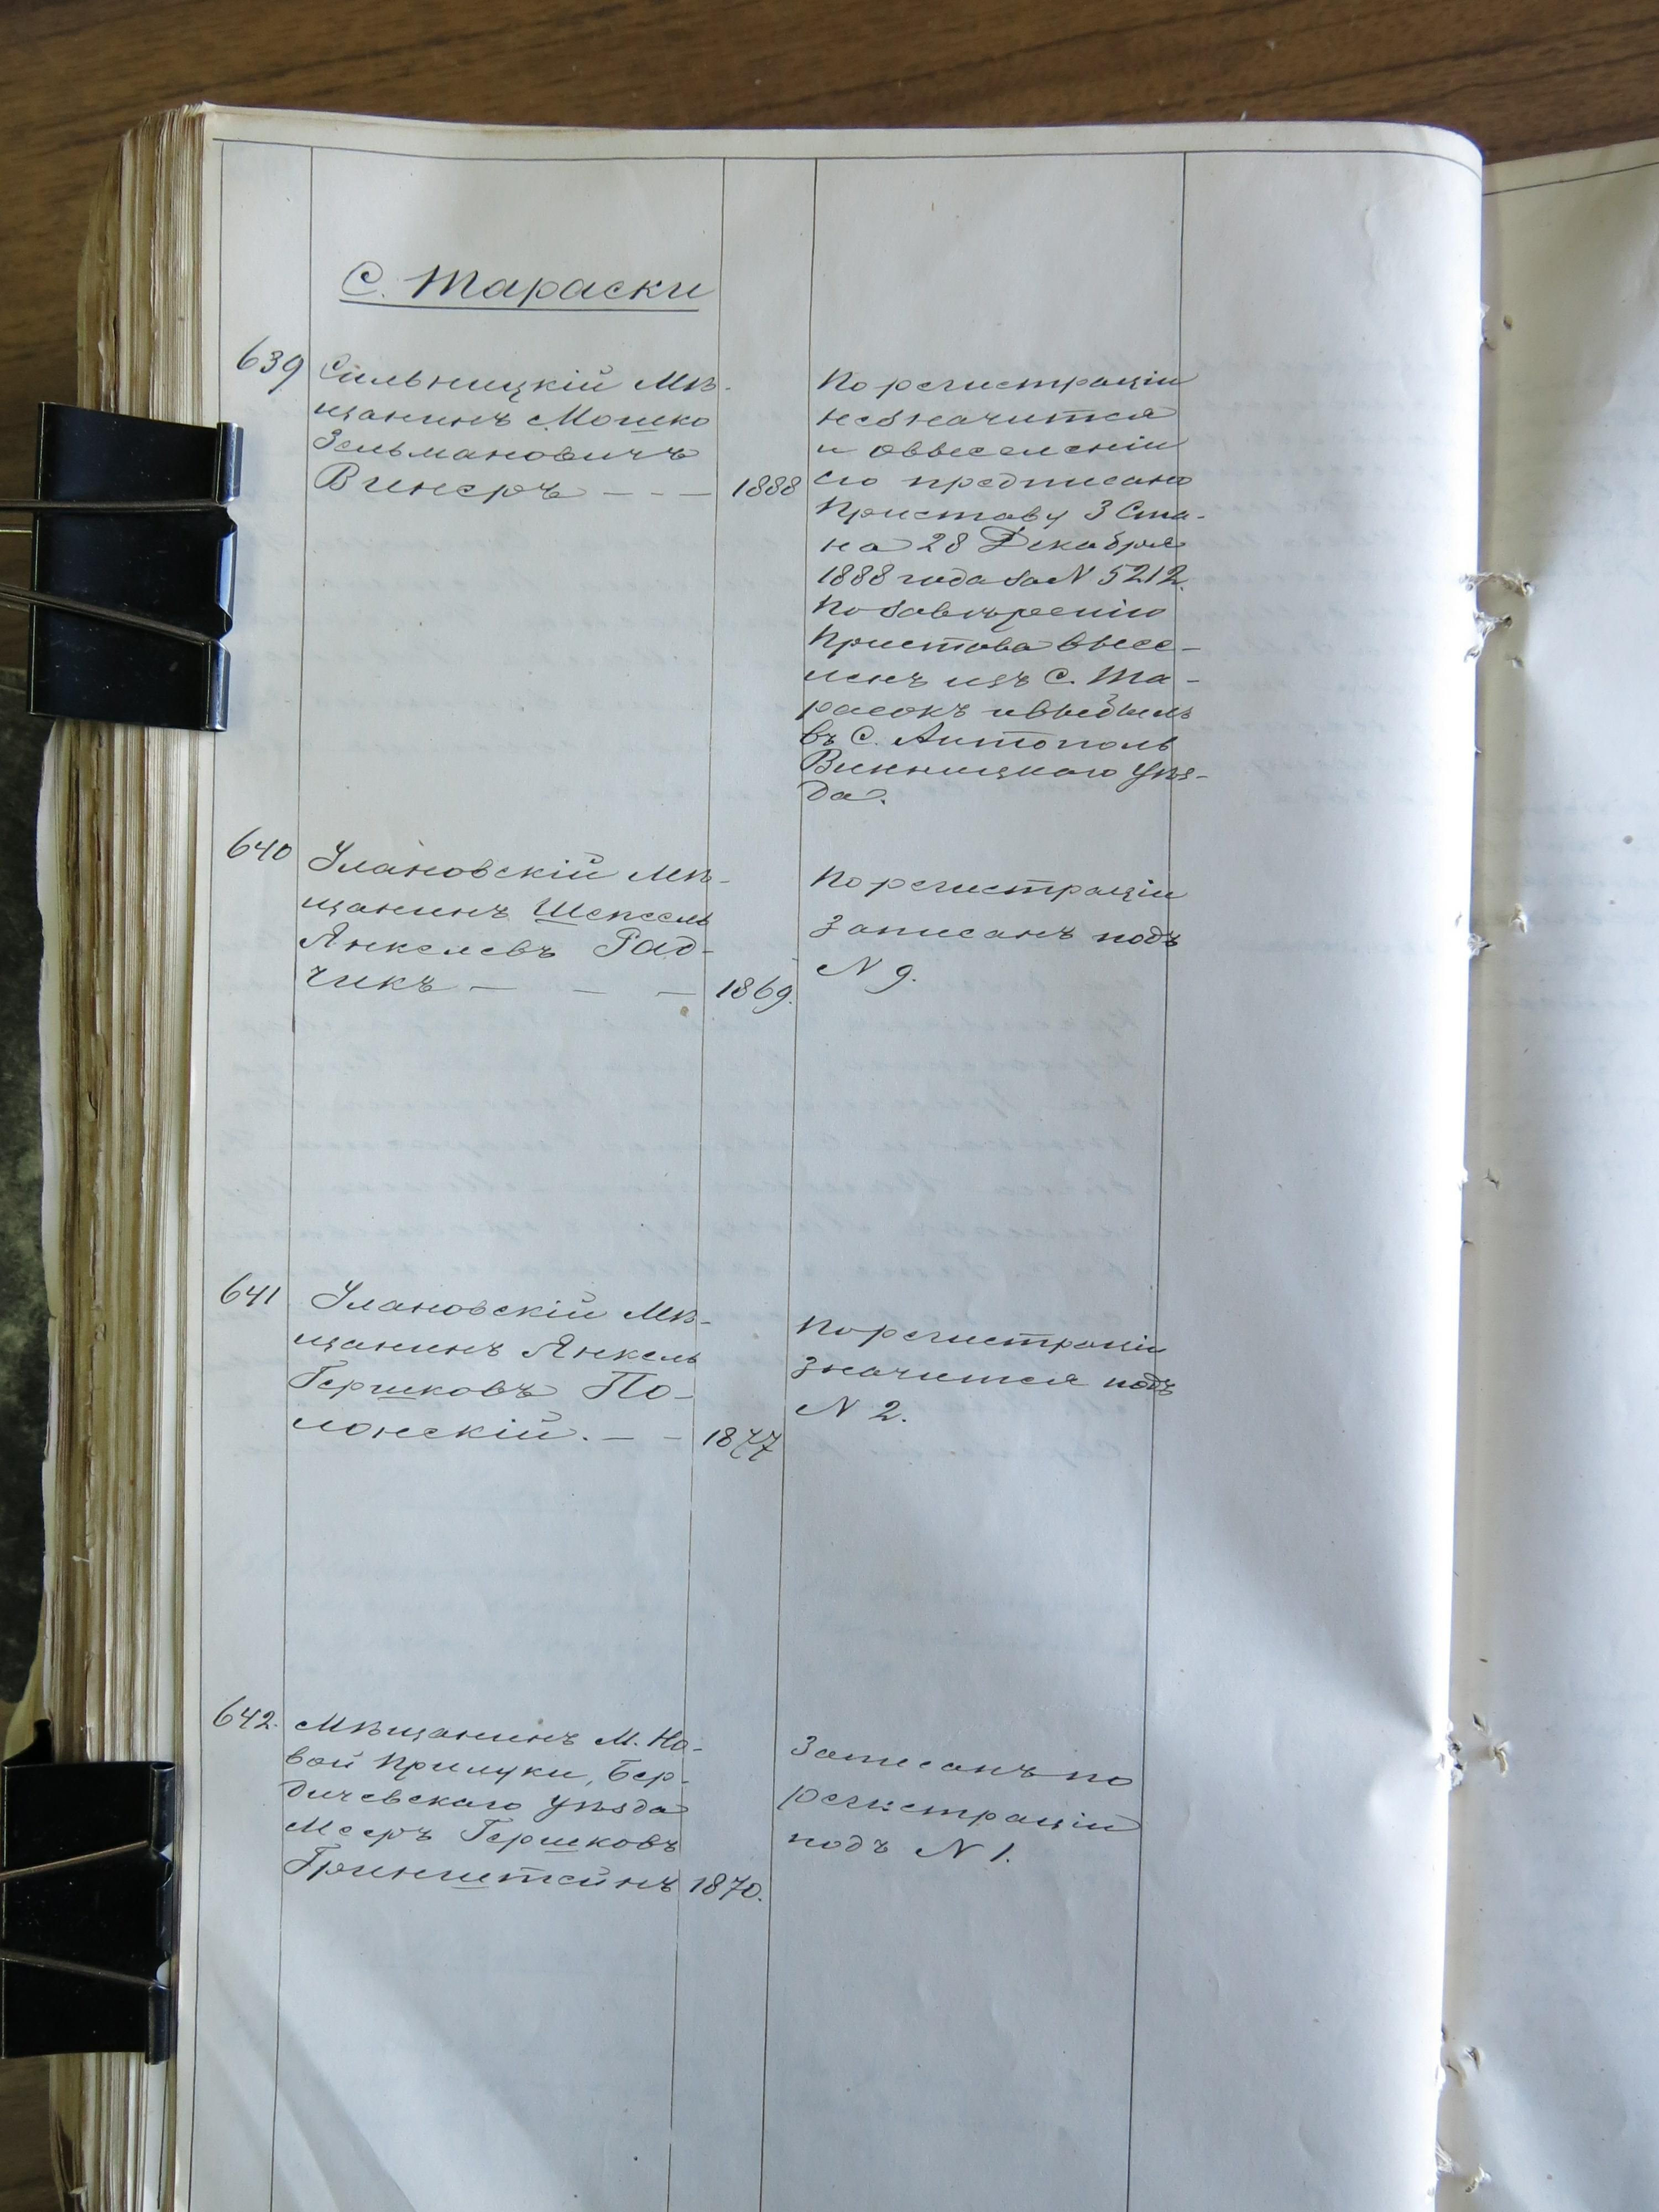 С. Тараски
639
Сильницкій Мѣ-
щанинъ Мошко
Зельмановичъ
Винеръ — — — 1888
По регистраціи
не значится
и овыселеніи
его предписано
Приставу 3 Ста-
на 28 Декабря
1888 года за N 5212.
По завѣренію
Пристава высе-
ленъ изъ С. Та-
расокъ и выбылъ
въ С. Антополь
Винницкаго Уѣз-
да.
640
Улановскій Мѣ-
щанинъ Шепсель
Янкелевъ Рад-
чикъ — — — 1869.
По регистраціи
записанъ подъ
N 9.
641
Улановскій Мѣ-
щанинъ Янкель
Гершковъ По-
лонскій. — — 1877
По регистраціи
значится подъ
N 2.
642.
Мѣщанинъ М. Но-
вой Прилуки, Бер-
дичевскаго уѣзда
Мееръ Гершковъ
Гринштейнъ 1870.
Записанъ по
регистраціи
подъ N 1.